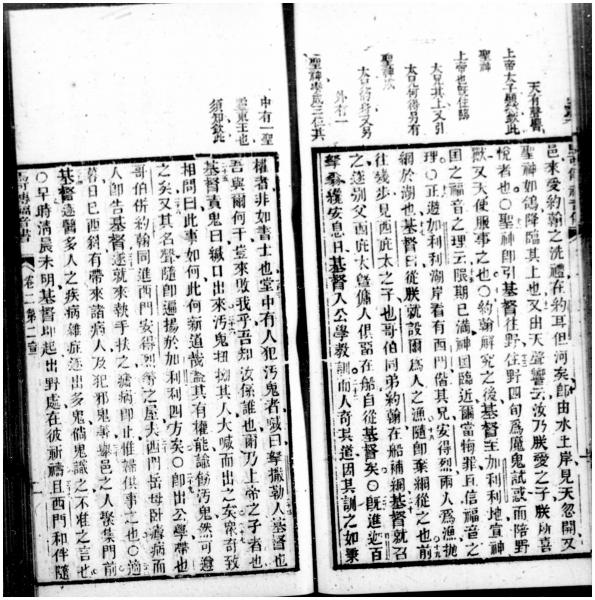 天有聲響
上帝太子
聖神
上帝也既住臨
太兄其上又引
太兄何得另有
聖神成
太兄的身又另
外有一
聖神 成三位其
邑來受約翰之洗禮在約耳但河矣即由水上岸見天忽開又
聖神如鴿降臨其上也又由天聲響云汝乃朕愛之子朕所喜
悅者也○聖神即引基督往野住野四旬為魔鬼試惑而陪野
獸又天使服事之也○約翰解究之後基督至加利利地宣神
國之福音之理云限期已滿神國臨近爾當悔罪且信福音之
理○正遊加利利湖岸看有西門偕其兄安得烈兩人為漁拋
網於湖也基督曰從朕就設爾為人之漁隨即棄網從之也前
往幾步見西庇太之子也哥伯同弟約翰在船補網基督就召
之遂別父西庇太暨傭人俱留在船自從基督矣○既進迦百
安息日基督入公學教訓而人奇其道因其訓之如秉
中有一聖
靈東王也
須知欽此
權者非如書士也堂中有人犯汚鬼者嘆曰拏撒勒人基督也
吾與爾何干豈來敗我乎吾知汝係誰也爾乃上帝之子者也
基督責鬼曰緘口出來汚鬼扭拗其人大喊而出之矣衆奇致
相問曰此事如何此何新道哉蓋其有權能諭飭汚鬼然可遵
之矣又其名聲隨即遍揚於加利利四方矣○即出公學帶也
哥伯併約翰同進西門安得烈等之屋夫西門岳母臥瘧病而
人即告基督遂就來執手扶之瘧病即止惟 供事之也○適
暮日已西斜有帶來諸病人及犯邪鬼 舉邑之人聚集門前
基督遂醫多人之疾病雜症逐出多鬼倘鬼識之不准之言也
○早時清晨未明基督即起出野處在彼祈禱且西門和伴隨
卷二第二章